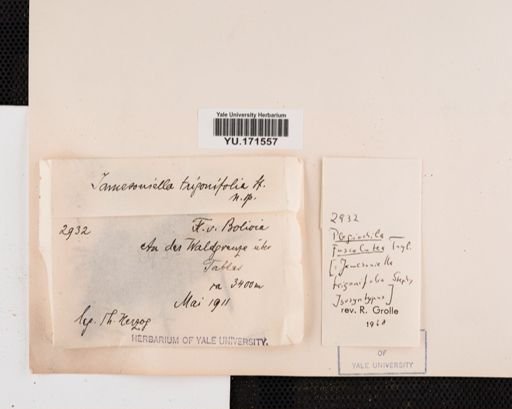 Yale University Herbarium
YU.171557
Jamesoniella trigonifolia H.
n. sp.
2932
F. v. Bolivia
An der Waldgrenze über
Tablas
ca 3400m
Mai 1911
leg. Th. Herzog
HERBARIUM OF YALE UNIVERSITY.
2932
Plagiochila
fuscolutea Tayl.
[Jamesoniella
trigonifolia Steph.
Isosyntypus]
rev. R. Grolle
1968
OF
YALE UNIVERSITY